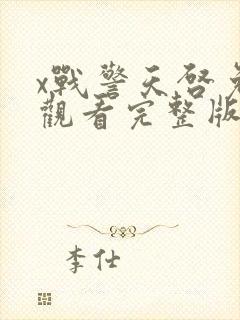 x戰警天啓免
觀看完整版
李仕